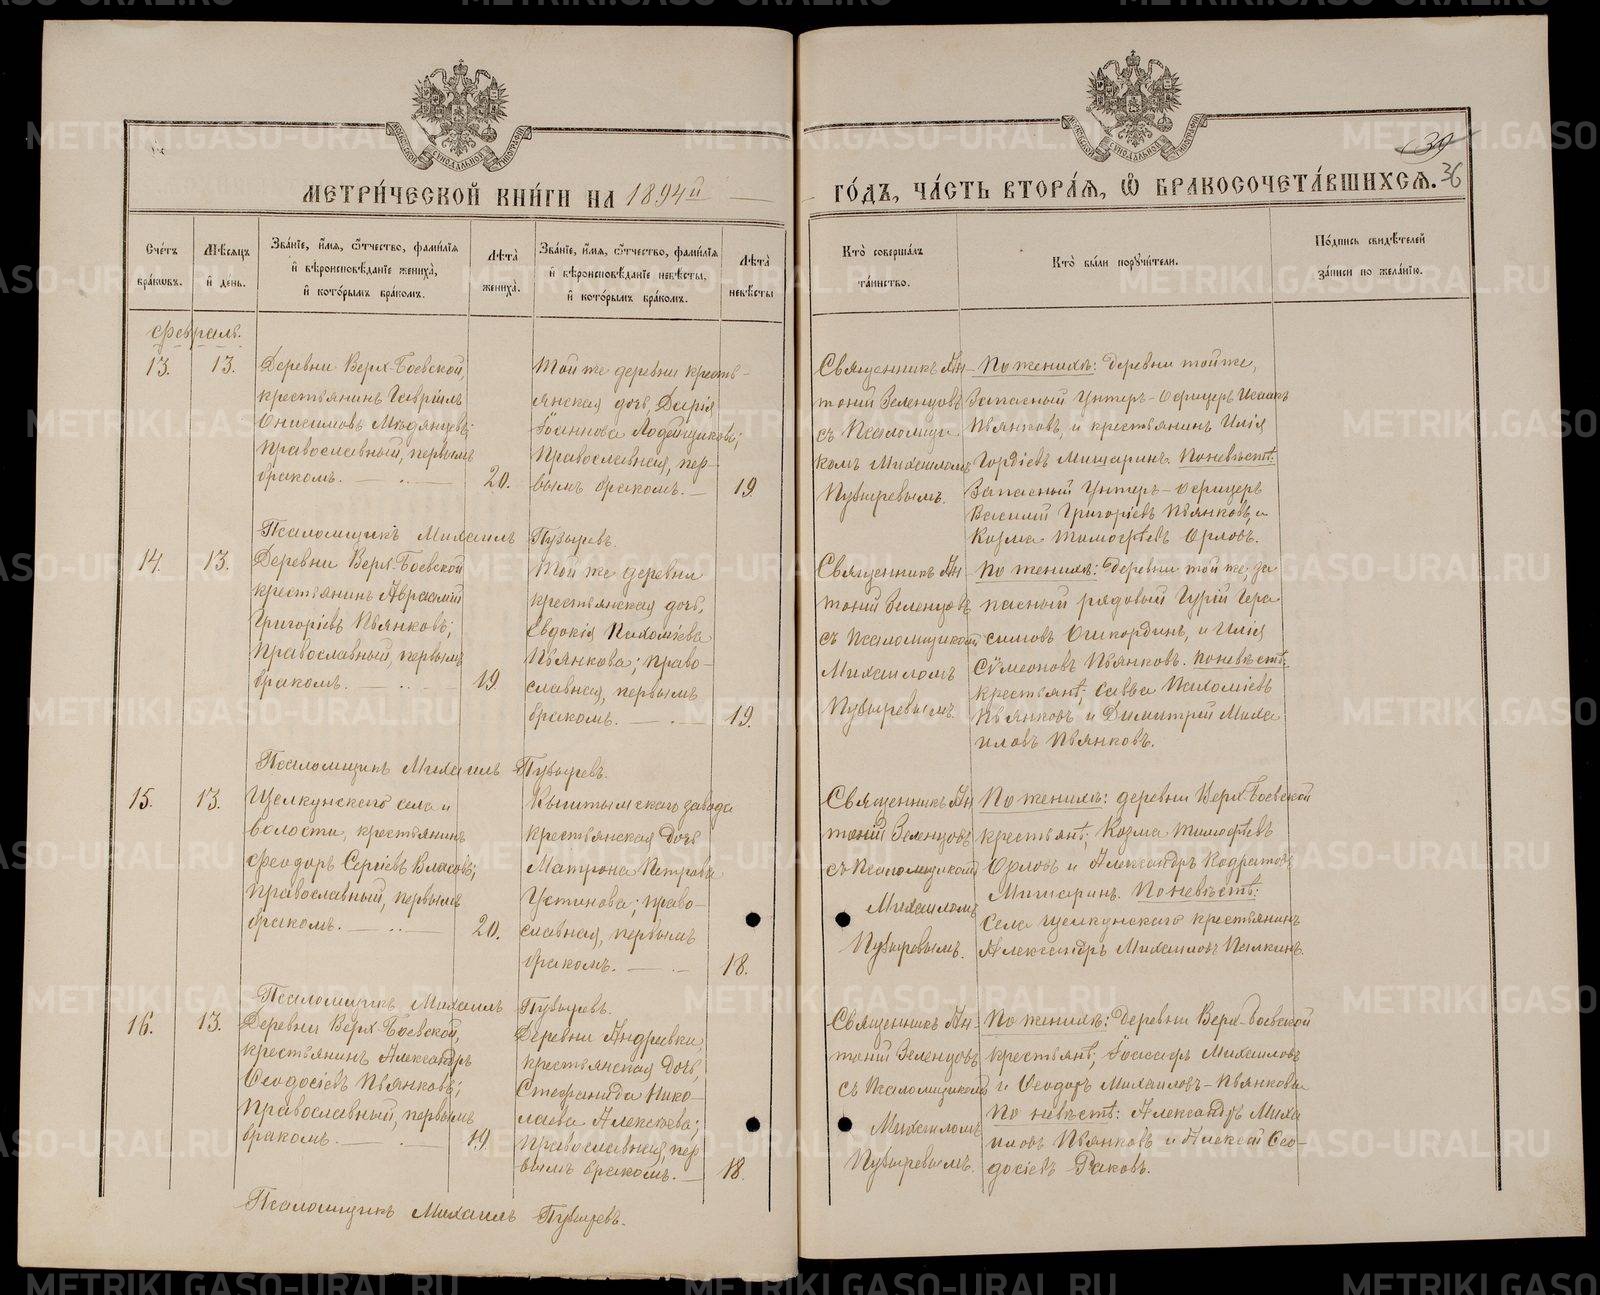 МЕТРИ́ЧЕСКОЙ КНИ́ГИ НА 1894й
ГО́ДЪ, ЧА́СТЬ ВТОРА́Я, Ѡ БРАКОСОЧЕТА́ВШИХСЯ.
39
36
Сче́тъ бра́ковъ.
Мѣ́сяцъ и҆ де́нь.
Зва́нїе, и҆́мя, ѻ҆́тчество, фами́лїя
и҆ вѣроисповѣ́данїе жениха̀,
и҆ кото́рымъ бра́комъ.
Лѣта̀ жениха̀.
Зва́нїе, и҆́мя, ѻ҆́тчество, фами́лїя
и҆ вѣроисповѣ́данїе невѣ́сты,
и҆ кото́рымъ бра́комъ.
Лѣта̀ невѣ́сты
Кто̀ соверша́лъ
та́инство.
Кто̀ бы́ли поручи́тели.
По́дпись свидѣ́телей
за́писи по жела́нїю.
Февраль.
13.
13.
Деревни Верх-Боевской,
крестьянинъ Гавріилъ
Онисимовъ Мѣдянцевъ;
православный, первымъ
бракомъ.
20.
Той же деревни кресть-
янская дочь, Дарія
Іоаннова Лодейщикова;
православная, пер-
вымъ бракомъ.
19.
Священникъ Ан-
тоній Зеленцовъ
съ Псаломщи
комъ Михаиломъ
Пузыревымъ.
По женихѣ: деревни той же,
Запасный Унтеръ-Офицеръ Исаакъ
Пьянковъ, и крестьянинъ Илія
Гордіевъ Мишаринъ. По невѣстѣ:
Запасный Унтеръ-Офицеръ
Василий Григоріевъ Пьянковъ, и
Козма Тимофѣевъ Орловъ.
Псаломщикъ Михаилъ Пузыревъ.
14.
13.
Деревни Верх-Боевской
крестьянинъ Авраамій
Григоріевъ Пьянковъ;
православный, первымъ
бракомъ.
19.
Той же деревни
крестьянская дочь,
Евдокія Пахоміева
Пьянкова; право-
славная, первымъ
бракомъ.
19.
Священникъ Ан
тоній Зеленцовъ
съ Псаломщикомъ
Михаиломъ
Пузыревымъ.
По женихѣ: деревни той же, за
пасный рядовый Гурій Гера
симовъ Ошкординъ, и Илія
Сѵмеоновъ Пьянковъ. По невѣстѣ:
крестьянѣ; Савва Пахоміевъ
Пьянковъ и Димитрій Миха
иловъ Пьянковъ.
Псаломщикъ Михаилъ Пузыревъ.
15.
13.
Щелкунскаго села и
волости, крестьянинъ
Феодоръ Сергіевъ Власовъ;
православный, первымъ
бракомъ.
20.
Кыштымскаго завода
крестьянская дочь
Матрона Петрова
Устинова; право-
славная, первымъ
бракомъ.
18.
Священникъ Ан
тоній Зеленцовъ
съ Псаломщикомъ
Михаиломъ
Пузыревымъ.
По женихѣ: деревни Верх-Боевской
крестьянѣ; Козма Тимофѣевъ
Орловъ и Александръ Кодратовъ
Мишаринъ. По невѣстѣ:
Села Щелкунскаго крестьянинъ
Александръ Михаиловъ Палкинъ.
Псаломщикъ Михаилъ Пузыревъ.
16.
13.
Деревни Верх-Боевской,
крестьянинъ Александръ
Ѳеодосіевъ Пьянковъ;
православный, первымъ
бракомъ.
19.
Деревни Андреевки,
крестьянская дочь,
Стефанида Нико-
лаева Алексѣева;
православная, пер
вымъ бракомъ.
18.
Священникъ Ан-
тоній Зеленцовъ
съ Псаломщикомъ
Михаиломъ
Пузыревымъ.
По женихѣ: деревни Верх-Боевской
крестьянѣ; Іоасафъ Михаиловъ
и Ѳеодоръ Михаиловъ-Пьянковы
По невѣстѣ: Александръ Миха
иловъ Пьянковъ и Алексѣй Ѳео-
досіевъ Раковъ.
Псаломщикъ Михаилъ Пузыревъ.